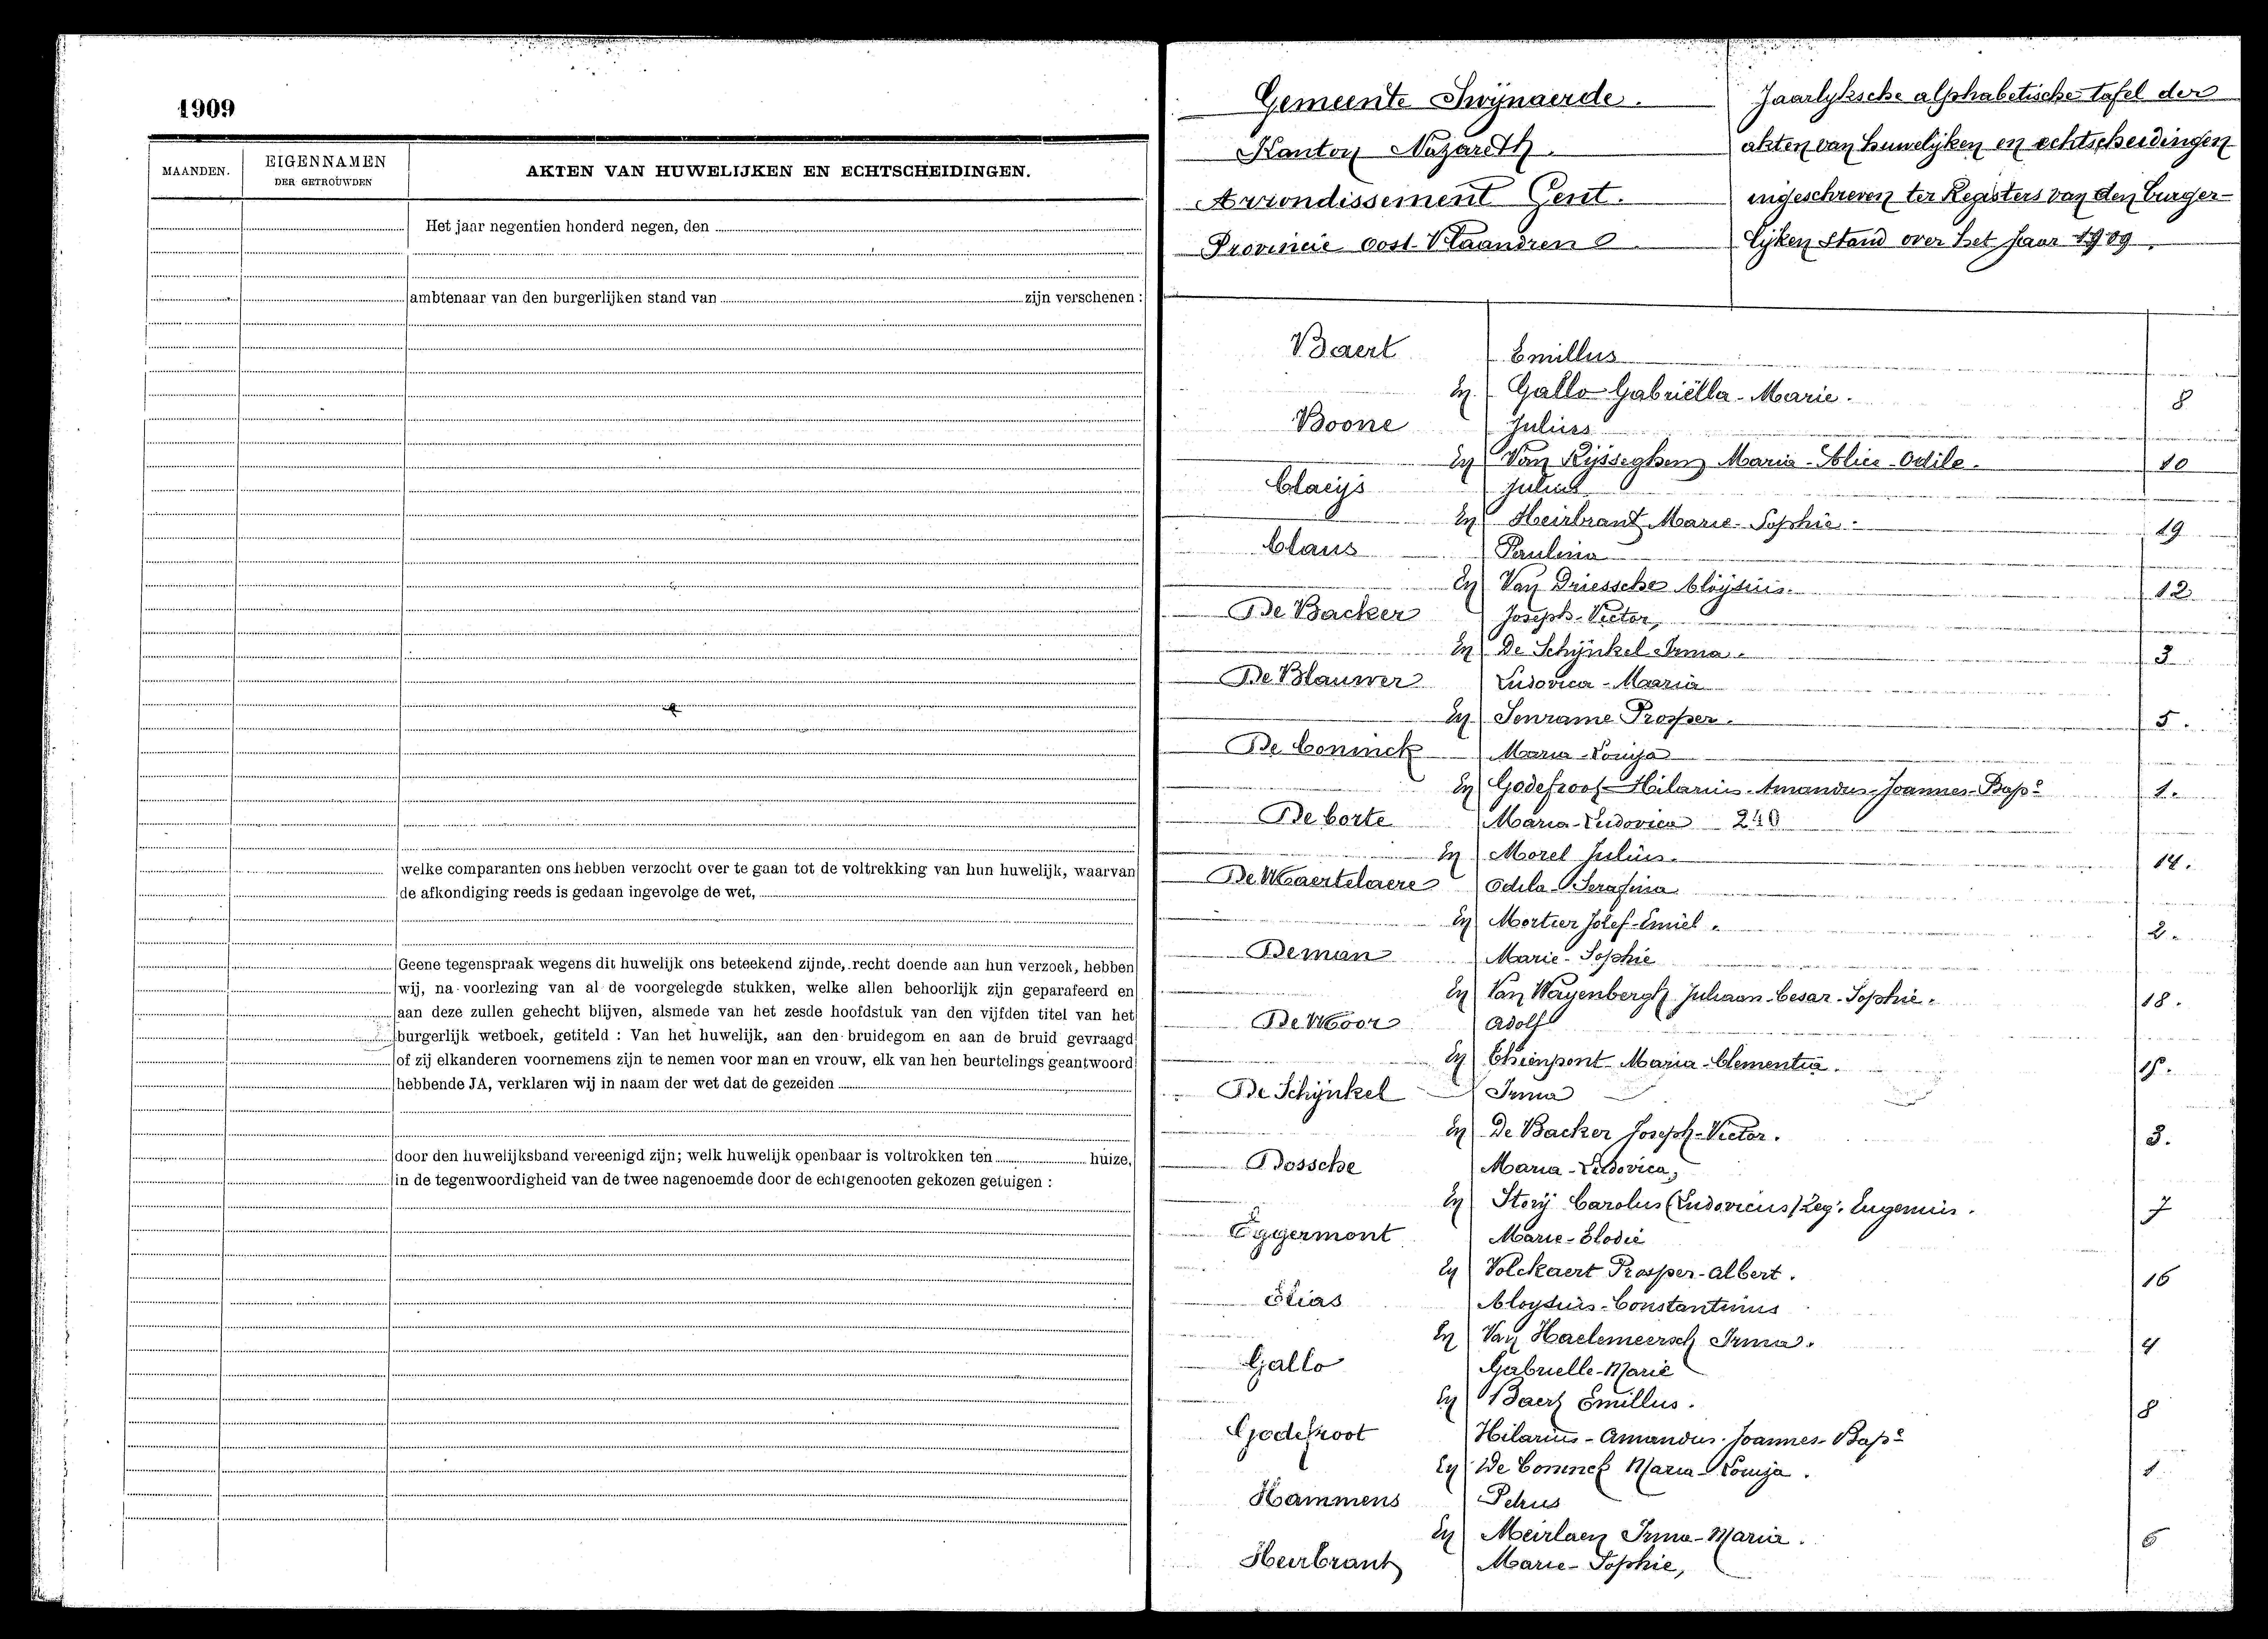 1909
MAANDEN.
EIGENNAMEN
DER GETROUWDEN
AKTEN VAN HUWELIJKEN EN ECHTSCHEIDINGEN.
Het jaar negentien honderd negen, den
ambtenaar van den burgerlijken stand van zijn verschenen :
welke comparanten ons hebben verzocht over te gaan tot de voltrekking van hun huwelijk, waarvan
de afkondiging reeds is gedaan ingevolge de wet,
Geene tegenspraak wegens dit huwelijk ons beteekend zijnde, recht doende aan hun verzoek, hebben
wij, na voorlezing van al de voorgelegde stukken, welke allen behoorlijk zijn geparafeerd en
aan deze zullen gehecht blijven, alsmede van het zesde hoofdstuk van den vijfden titel van het
burgerlijk wetboek, getiteld : Van het huwelijk, aan den bruidegom en aan de bruid gevraagd
of zij elkanderen voornemens zijn te nemen voor man en vrouw, elk van hen beurtelings geantwoord
hebbende JA, verklaren wij in naam der wet dat de gezeiden
door den huwelijksband vereenigd zijn; welk huwelijk openbaar is voltrokken ten huize,
in de tegenwoordigheid van de twee nagenoemde door de echtgenooten gekozen getuigen :
Gemeente Swijnaerde.
Kanton Nazareth.
Arrondissement Gent.
Provincie Oost-Vlaandren
Jaarlyksche alphabetische tafel der
akten van huwelijken en echtscheidingen
ingeschreven ter Registers van den burger-
lijken stand over het jaar 1909.
Baert Emillus
En Gallo Gabriëlla-Marie. 8
Boone Julius
En Van Rijsseghem Maria-Alice-Odile. 10
Claeijs Julius
En Heirbrant Marie-Sophie. 19
Claus Paulina
En Van Driessche Aloÿsius. 12
De Backer Joseph-Victor,
En De Schijnkel Irma. 3
De Blauwer Ludovica-Maria
En Senrame Prosper. 5.
De Coninck Maria-Louija
En Godefroot Hilarius-Amandus-Joannes-Bapᵉ 1.
De Corte Maria-Ludovica 240
En Morel Julius. 14.
De Maertelaere Odila-Serafina
En Mortier Jozef-Emiel. 2.
Deman Marie-Sophie
En Van Wayenbergh Juliaan-Cesar-Sophie. 18.
De Moor Adolf
En Chienpont Maria-Clementia. 15.
De Schijnkel Irma
En De Backer Joseph-Victor. 3.
Dossche Maria-Ludovica,
En Storij Carolus (Ludovicus) Zeg. Eugenius. 7
Eggermont Marie-Elodie
En Volckaert Prosper-Albert. 16
Elias Aloysius-Constantinus
En Van Haelemeersch Irma. 4
Gallo Gabrielle-Marie
En Baert Emillus. 8
Godefroot Hilarius-Amandus-Joannes-Bapᵉ
En De Coninck Maria-Louija. 1
Hammens Petrus
En Meirlaen Irma-Maria. 6
Heirbrant Marie-Sophie,